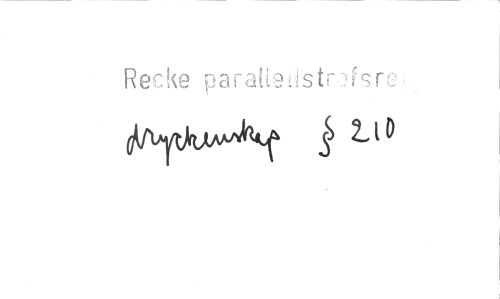 Recke parallellstrofsre
dryckenskap § 210